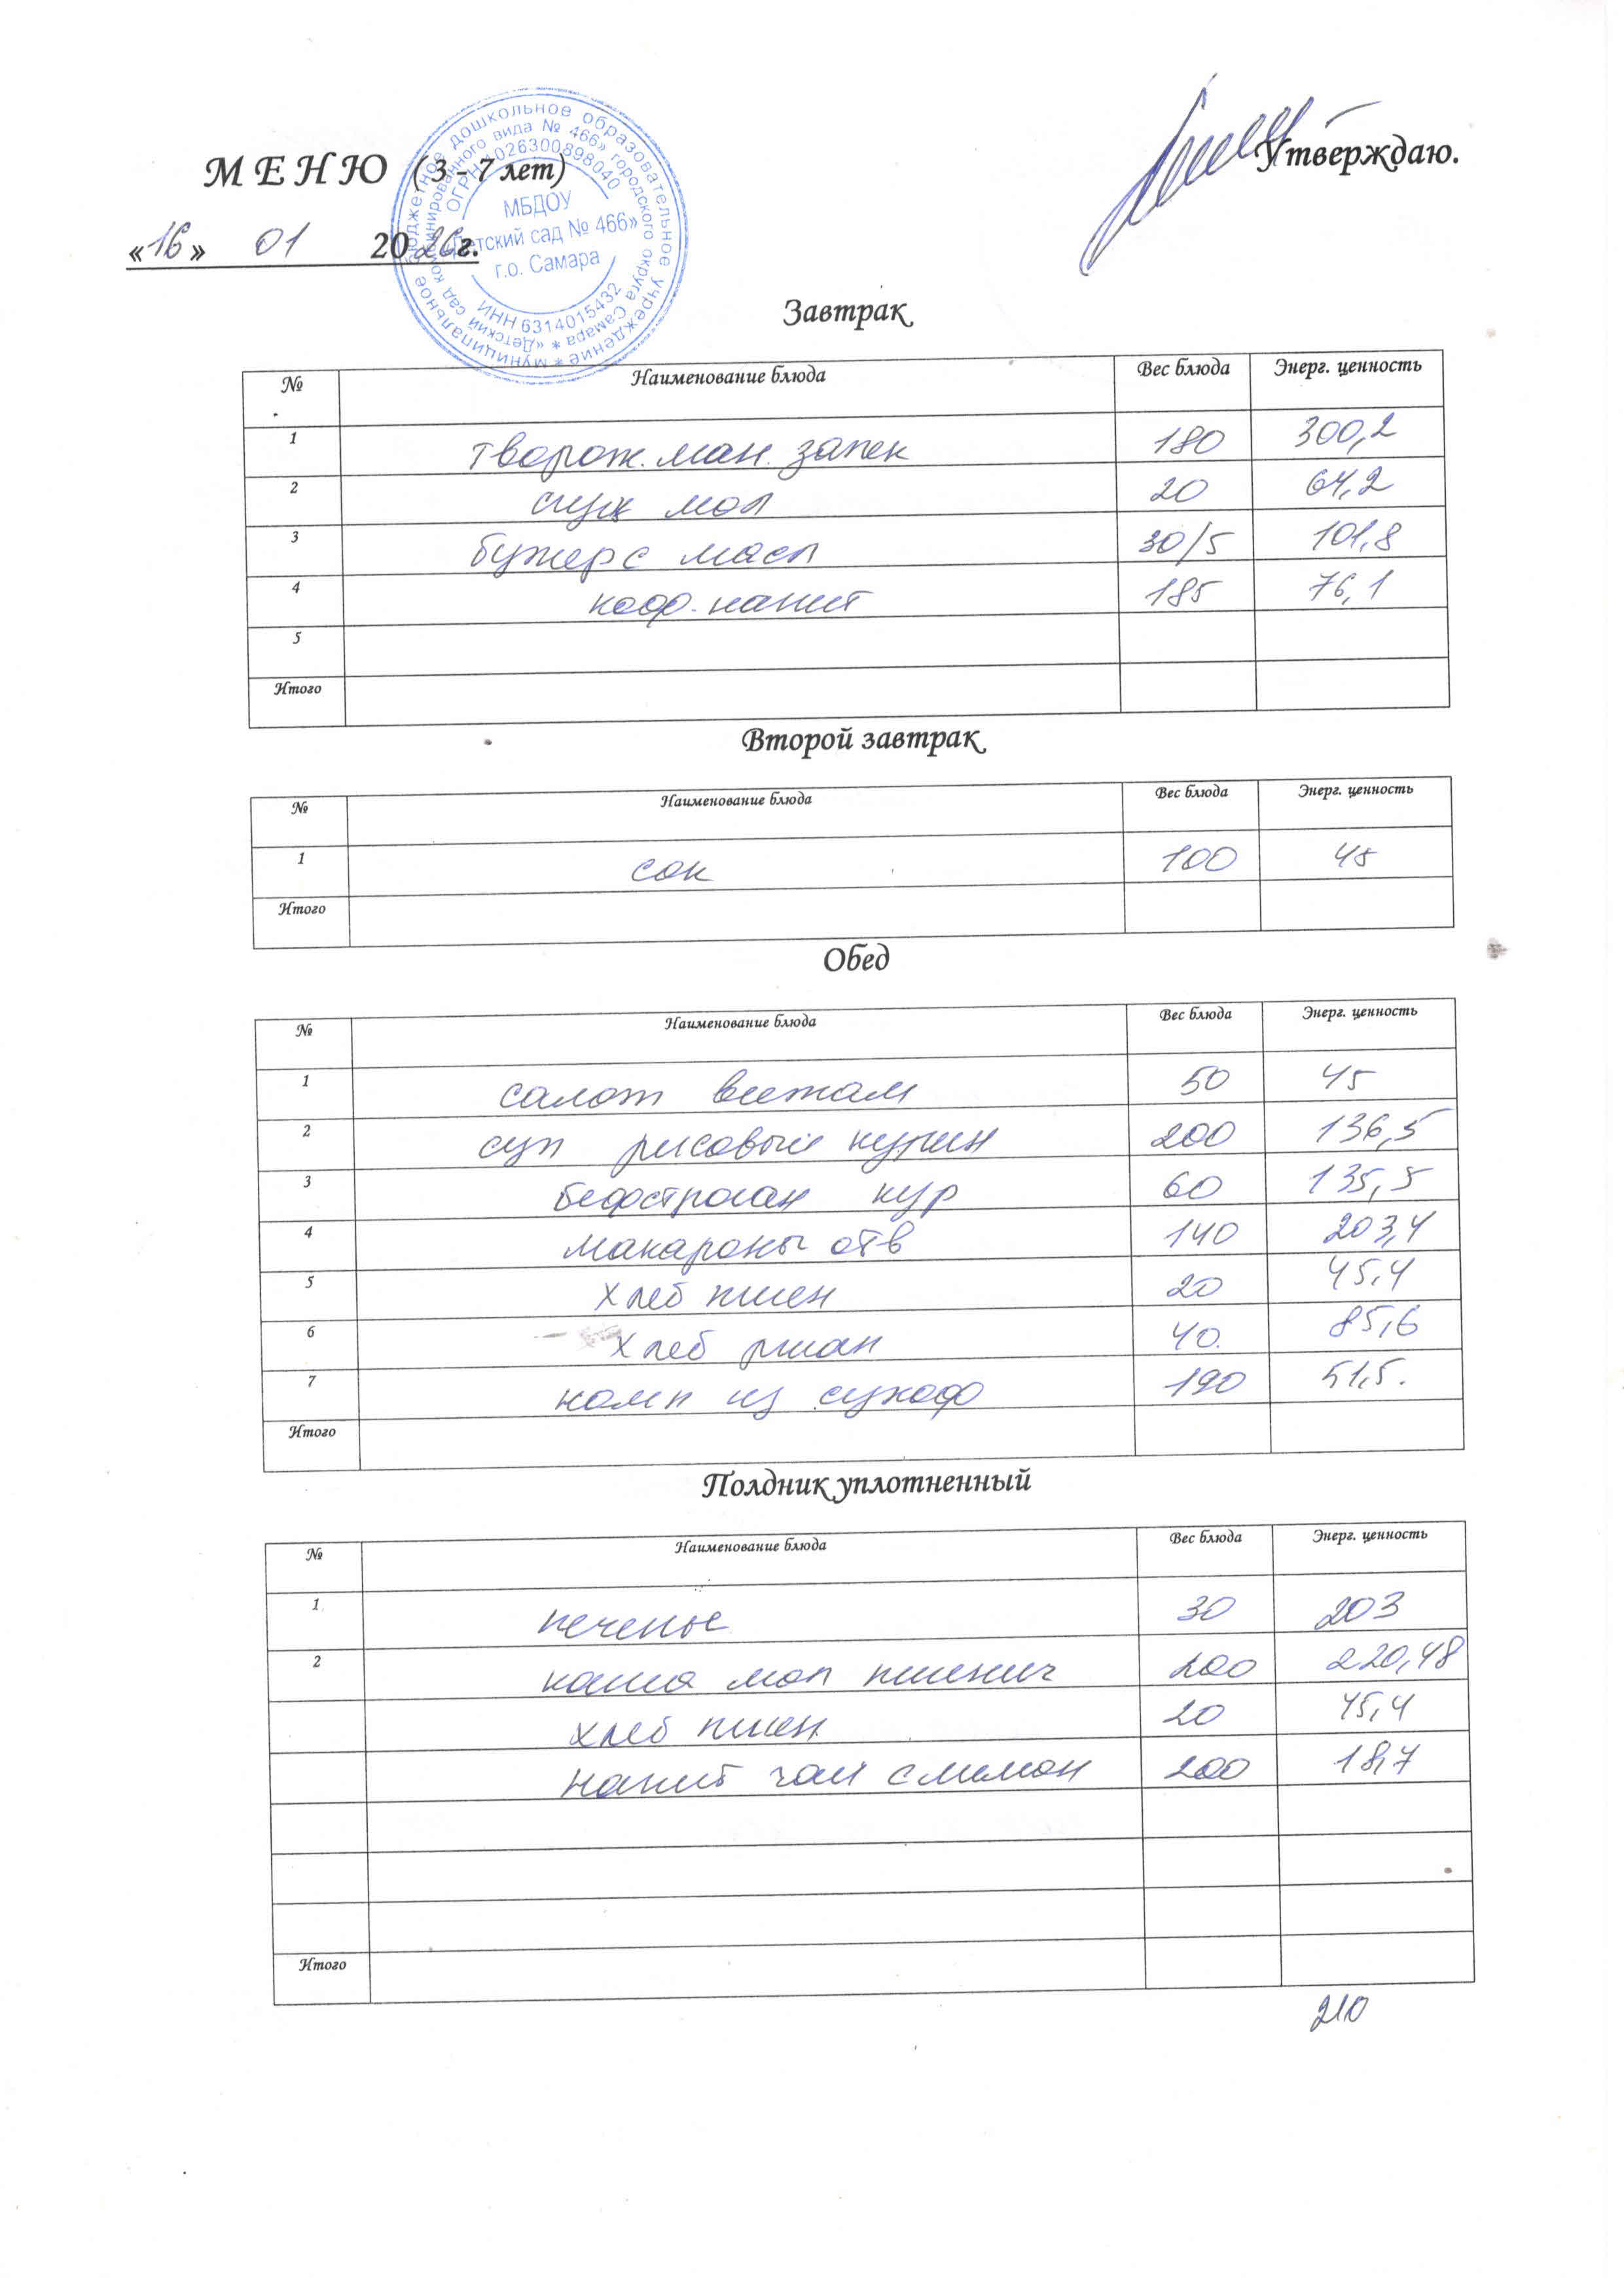 МЕНЮ (3 - 7 лет)
Утверждаю.
«16» 01 2026г.
муниципальное бюджетное дошкольное образовательное учреждение *
«Детский сад комбинированного вида № 466» городского округа Самара *
ОГРН 1026300898040
МБДОУ
«Детский сад № 466»
г.о. Самара
ИНН 6314015432
Завтрак
№ Наименование блюда Вес блюда Энерг. ценность
1 творож. ман. запек 180 300,2
2 сгущ мол 20 64,2
3 бутер с масл 30/5 101,8
4 кофр. напит 185 76,1
5
Итого
Второй завтрак
№ Наименование блюда Вес блюда Энерг. ценность
1 сок 100 45
Итого
Обед
№ Наименование блюда Вес блюда Энерг. ценность
1 салат витам 50 45
2 суп рисовый курин 200 136,5
3 бефстроган кур 60 135,5
4 макароны отв 140 203,4
5 хлеб пшен 20 45,4
6 хлеб ржан 40. 85,6
7 комп из сухоф 190 51,5.
Итого
Полдник уплотненный
№ Наименование блюда Вес блюда Энерг. ценность
1 печенье 30 203
2 каша мол пшенич 200 220,48
хлеб пшен 20 45,4
напит чай с лимон 200 18,7
Итого
210